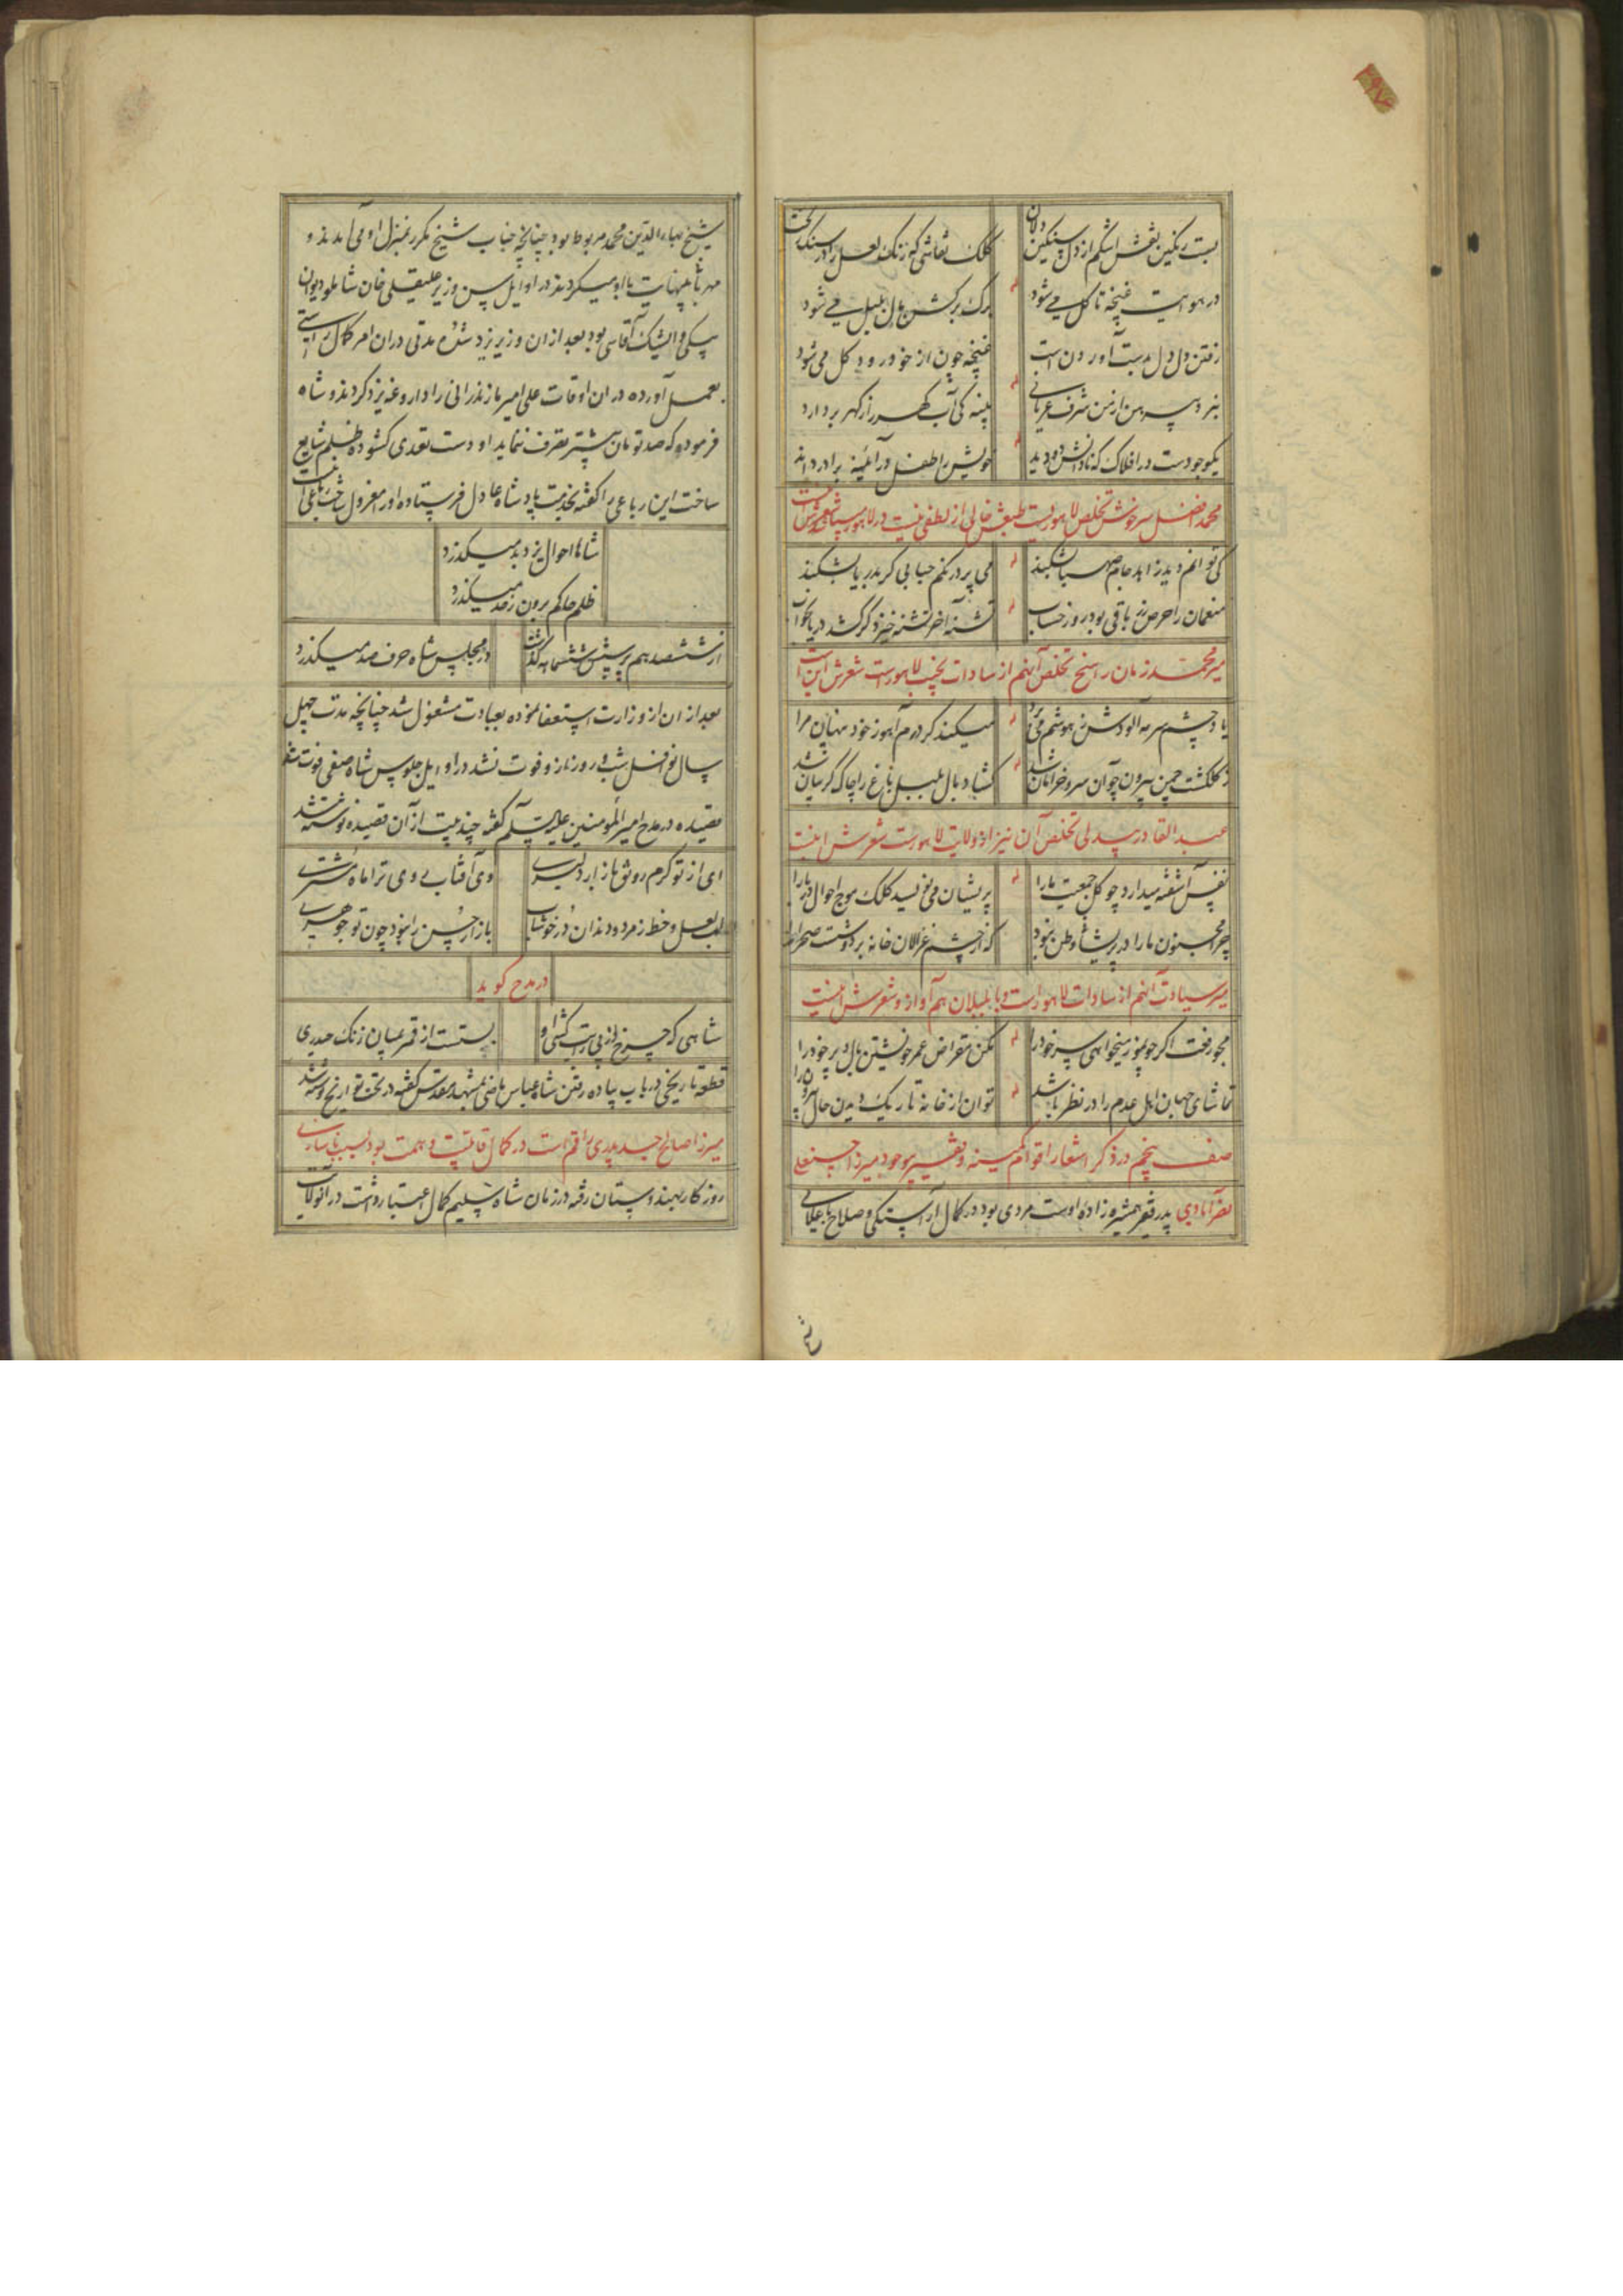 بست رنگین نقش اشکم از دل سنگین دلان
کلک نقاشی که رنگ لعل را در سنگ ریخت
در هوایت غنچه تا گل می شود
برک برکش بال بلبل می شود
رفتن دل دل بدست آوردن است
غنچه چون از خود رود گل می شود
برد پیرهن از من شرف عریانی
پنبه کی آب گهر را ز گهر بردارد
یک وجودست در افلاک که نادانش دو دید
خویش را طفل در آئینه برادر داند
محمد افضل سرخوش تخلص لاهوریست طبعش خالی از لطفی نیست در لاهور میباشد شعرش اینست
کی توانم دید زاهد جام صهبا بشکند
می پرد رنگم حبابی گر بدریا بشکند
منعمان را حرص زر باقی بود روز حساب
تشنه آخر تشنه خیزد گر کشد دریا بخواب
میر محمد زمان راسخ تخلص آنهم از سادات نجیب لاهورست شعرش این است
یاد چشم سرمه آلودش ز هوشم می برد
میکند گرد رم آهو ز خود پنهان مرا
ز گلگشت چمن بیرون چو آن سرو خرامان شد
گشاد بال بلبل باغ را چاک گریبان شد
عبدالقادر بیدلی تخلص آن نیز از ولایت لاهورست شعرش اینست
نفس آشفته میدارد چو گل جمعیت ما را
پریشان می نویسد کلک موج احوال دریا را
چرا مجنون ما را در پریشانی وطن نبود
که از چشم غزالان خانه بر دوشست صحرا را
میر سیادت آنهم از سادات لاهور است و با بلبلان هم آواز و شعرش اینست
مجو رفعت اگر چون مور میخواهی سر خود را
مکن مقراض عمر خویشتن بال و پر خود را
تماشای جهان اهل عدم را در نظر باشد
توان از خانه تاریک دیدن حال بیرون را
صف پنجم در ذکر اشعار اقوام کمینه و فقیر بیوجود میرزا حسنعلی
نصرآبادی پدر فقیر همشیره زاده اوست مردی بود در کمال آراستگی و صلاح با علامی
شیخ بهاءالدین محمد مربوط بود چنانچه جناب شیخ مکرر بمنزل او می آمدند و
مهربانیهای بینهایت با او میکردند در اوایل سن وزیر علیقلی خان شاملو دیوان
بیکی و ایشک آقاسی بود بعد از ان وزیر یزد شده مدتی در ان امر کمال راستی
بعمل آورده در ان اوقات علی امیر مازندرانی را داروغه یزد کردند و شاه
فرموده که صد تومان بیشتر تصرف ننماید او دست تعدی کشوده ظلم شایع
ساخت این رباعی را گفته بخدمت پادشاه عادل فرستاده او را معزول ساخت رباعی اینست
شاها احوال یزد بد میگذرد
ظلم حاکم برون ز حد میگذرد
از ششصد هم برسش ششماهه گذشت
در مجلس شاه حرف صد میگذرد
بعد از ان از وزارت استعفا نموده بعبادت مشغول شد چنانچه مدت چهل
سال نوافل شب و روز ناز و فوت نشد در اوایل جلوس شاه صفی فوت شد
قصیده در مدح امیر المؤمنین علیه السلم گفته چند بیت از آن قصیده نوشته شد
ای از تو گرم رونق بازار دلبری
وی آفتاب روی ترا ماه مشتری
لب لعل و خط زمرد و دندان در خوشاب
بازار حسن را نبود چون تو جوهری
در مدح گوید
شاهی که چرخ از پی رایت کشی او
بستست از قمر بمیان زنگ حیدری
قطعه تاریخی در باب پیاده رفتن شاه عباس ماضی بمشهد مقدس گفته در تحت تواریخ نوشته شد
میرزا صالح جد پدری راقم است در کمال قابلیت و همت بود بسبب ناسازی
روزگار بهندوستان رفته در زمان شاه سلیم کمال اعتبار داشت در آنولایت